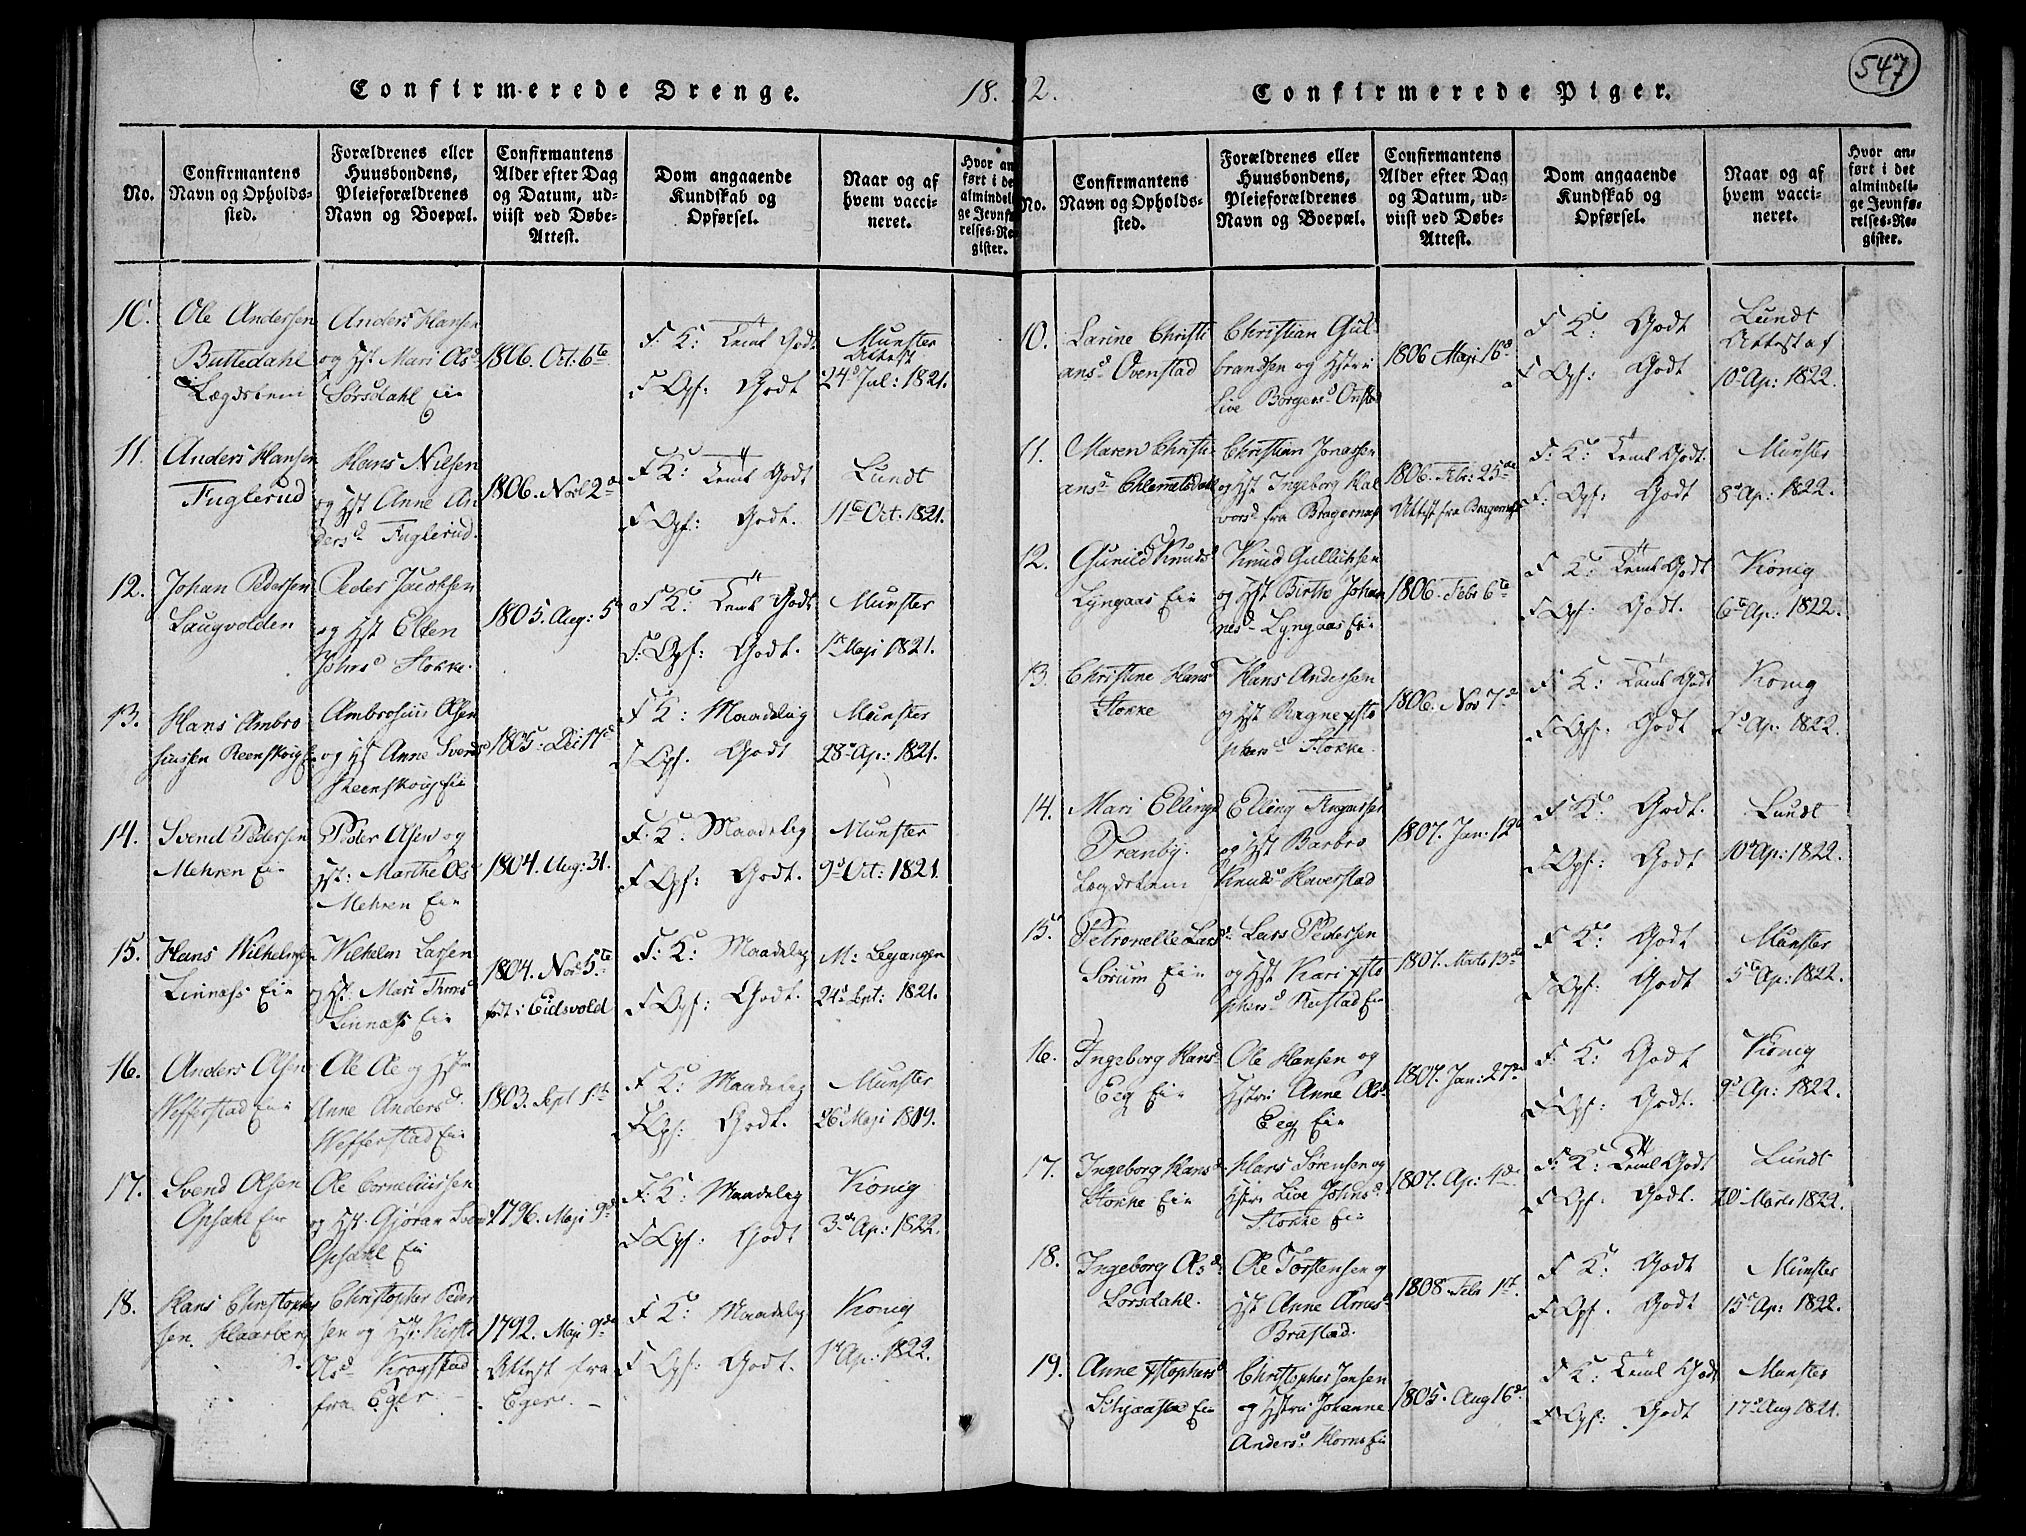 547
Confirmerede Drenge.
18.22.
No.
Confirmantens
Navn og Opholds-
sted.
Forældrenes eller
Huusbondens,
Pleieforældrenes
Navn og Boepæl.
Confirmantens
Alder efter Dag
og Datum, ud-
viist ved Døbe-
Attest.
Dom angaaende
Kundskab og
Opførsel.
Naar og af
hvem vacci-
neret.
Hvor an
ført i de
almindel
ge Jevnfø
relses-Re
gister.
10.
Ole Andersen
Buttedahl
Lægdslem
Anders Hansen
og Hst Mari Olsd
Sørsdahl Eie
1806. Oct. 6te
F. K: Teml Godt
F Opf: Godt
Munster
Attest
24d Jul: 1821.
11.
Anders Hansen
Fuglerud
Hans Nilsen
og Hst Anne An
dersd Fuglerud.
1806. Nov 2d
F K: Teml Godt
F Opf: Godt.
Lundt
11te Oct: 1821.
12.
Johan Pedersen
Laugvolden
Peder Jacobsen
og Hst Ellen
Johnsd Stokke.
1805. Aug: 5te
F K: Teml Godt
F: Opf: Godt.
Munster
1st Maji 1821.
13.
Hans Ambro
siusen Reenskoug Eie
Ambrosius Olsen
og Hst Anne Svendsd
Reenskoug Eie
1805. Dec 17d
F K: Maadelig
F Opf. Godt
Munster
28d Ap: 1821.
14.
Svend Pedersen
Mehren Eie
Peder Olsen og
Hst: Marthe Ols
Mehren Eie
1804. Aug: 31.
F. K: Maadelig
F Opf: Godt.
Munster
9d Oct: 1821.
15.
Hans Wilhelmsen
Linnæss Eie
Wilhelm Larsen
og Hst. Mari Thoresd
Linnæss Eie
1804. Nov 5te
født i Eidsvold
F. K: Maadelig
F Opf: Godt.
M: Leganger
24d Sept: 1821.
16.
Anders Olsen
Wefferstad Eie
Ole Ae og Hst
Anne Andersd.
Wefferstad Eie
1803. Sept 1ste
F K: Maadelig
F Opf: Godt.
Munster
26d Maji 1819.
17.
Svend Olsen
Opsahl Eie
Ole Corneliussen
og Hst. Gjøran Svends
Opsahl Eie
1796. Maji 9de
F. K: Maadelig
F Opf: Godt
Konig
3de Ap: 1822.
18.
Hans Christopher
sen. Haarberg
Christopher Peder
sen og Hst: Kirsti
Olsd Krogstad
fra Eger.
1792. Maji 9de
Attest fra
Eger.
F. K: Maadelig
F Opf: Godt.
Konig
1st Ap: 1822.
Confirmerede Piger.
No.
Confirmantens
Navn og Opholds-
sted.
Forældrenes eller
Huusbondens,
Pleieforældrenes
Navn og Boepæl.
Confirmantens
Alder efter Dag
og Datum, ud-
viist ved Døbe-
Attest.
Dom angaaende
Kundskab og
Opførsel.
Naar og af
hvem vacci-
neret.
Hvor an-
ført i det
almindeli-
ge Jevnfø-
relses-Re-
gister.
10.
Larine Christi
ansd Ovenstad
Christian Gul-
brandsen og Hstru
Live Borgersd Onstad
1806 Maji 16d
F K: Godt
F Opf: Godt
Lundt
Attest af
10d Ap: 1822.
11.
Maren Christi
ansd Chlemetsdahl
Christian Jonassen
og Hst Ingeborg Hal
vorsd fra Bragernæs
1806. Febr: 25de
Attist fra Bragernæs
F: K: Teml Godt.
F: Opf: Godt
Munster
8d Ap: 1822.
12.
Gunild Knuds
Lyngaas Eie
Knud Gullichsen
og Hst Birthe Johan
nesd Lyngaas Eie
1806. Febr 6te
F K: Teml Godt
F Opf: Godt.
Konig
6te Ap: 1822.
13.
Christine Hansd
Stokke
Hans Andersen
og Hst Ragne Xsto
phersd Stokke.
1806. Nov 7d
F K: Teml Godt
F Opf: Godt
Konig
Ap: 1822.
14.
Mari Ellingd
Tranby.
Lægdslem
Elling
og Hst Barbro
Knudsd Haverstad
1807. Jan: 12te
F K: Godt.
F Opf: Godt
Lundt
10d Ap: 1822.
15.
Petronelle Larsd
Sørum Eie
Lars Pedersen
og Hst Kari Xsto
phersd Rustad Eie
1807. Marts 13de
F K: Godt
F Opf: Godt
Munster
5te Ap: 1822.
16.
Ingeborg Hansd
Eeg Eie
Ole Hansen og
Hstru Anne Olsd
Eeg Eie
1807. Jan: 27de
F: K: Godt
F Opf: Godt.
Konig
9d Ap: 1822.
17.
Ingeborg Hansd
Stokke Eie
Hans Sørensen og
Hstru Live Johnsd.
Stokke Eie
1807. Ap: 4de
F: K: Teml Godt
F Opf: Godt.
Lundt
20d Marts 1822.
18.
Ingeborg Olsd
Lorsdahl.
Ole Torstensen og
Hst Anne Arnesd
Brastad.
1808 Feb 1st.
F K: Godt
F Opf. Godt
Munster
15d Ap: 1822.
19.
Anne Xstophersd
Eie
Christopher Jensen
og Hstru Johanne
Andersd. Horns Eie
1805. Aug 16d
F K: Teml Godt
F Opf: Godt
Munster
17d Aug 1821.